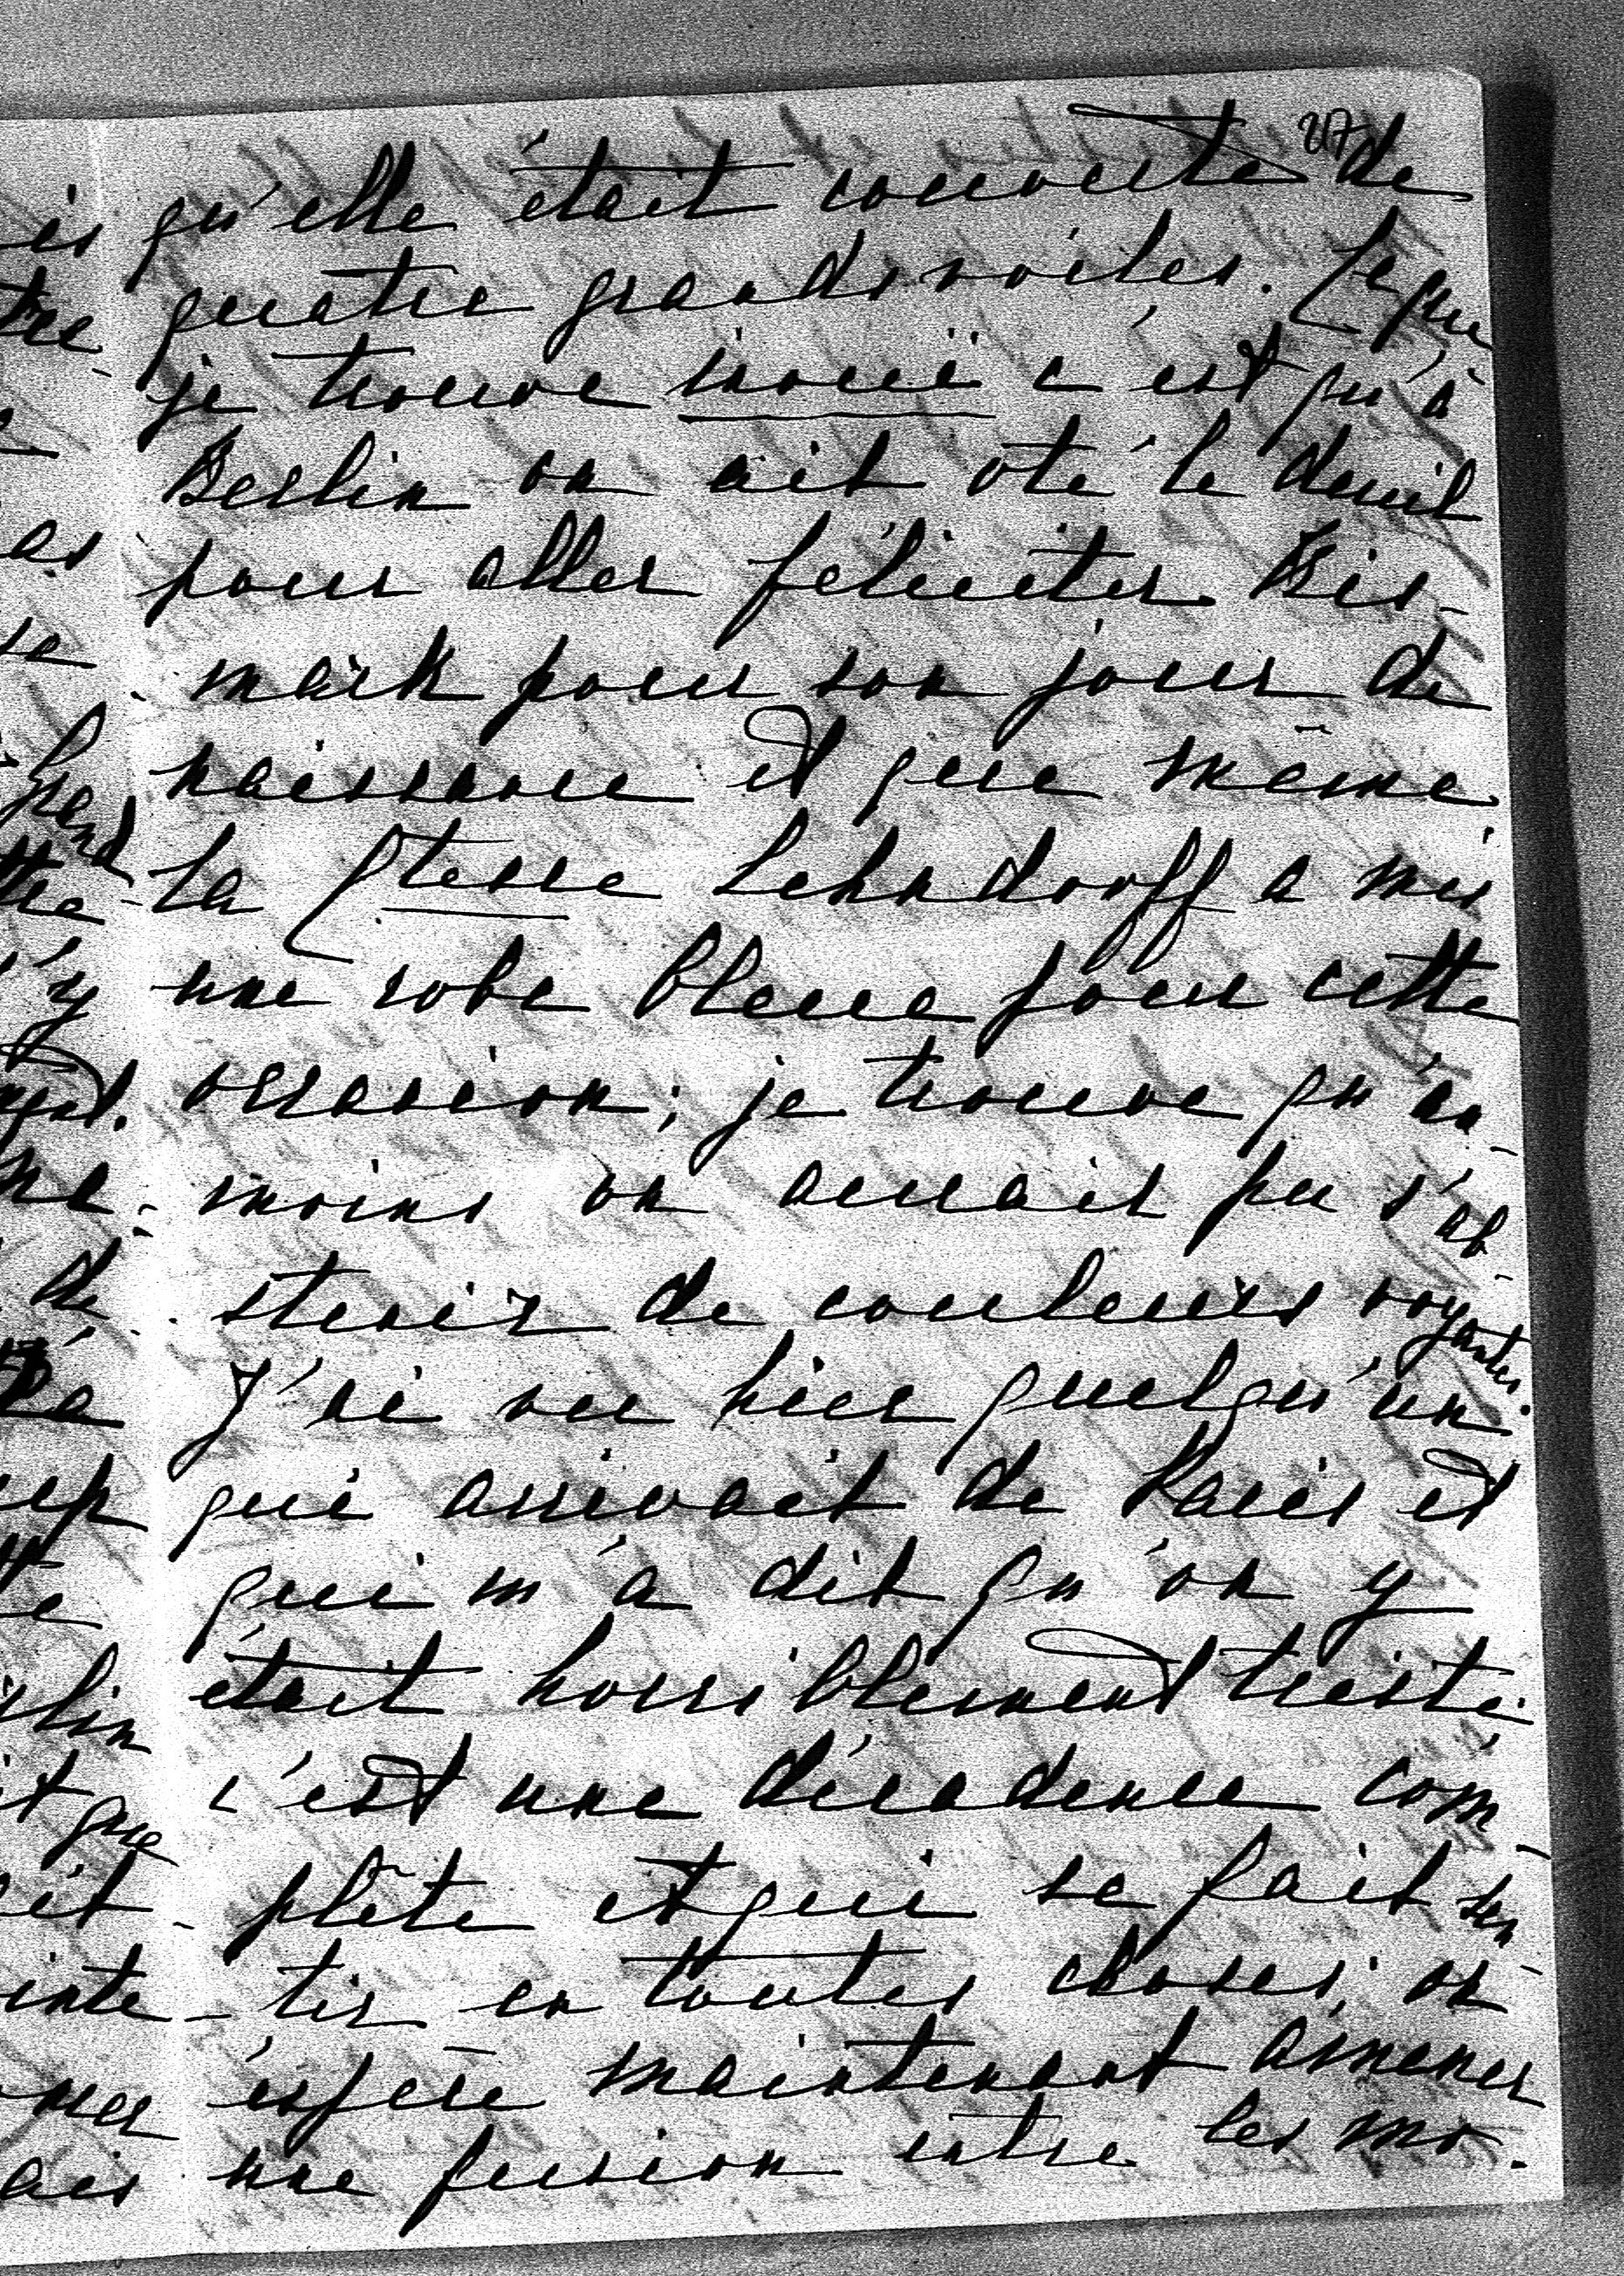 217
qu'elle était couverte de
quatre grands voiles. Ce que
je trouve inouï c'est qu'à
Berlin on ait oté le deuil
pour aller féliciter Bis-
mark pour son jour de
naissance et que même
la Ctesse Lehndorff a mis
une robe bleue pour cette
occasion; je trouve qu'au
moins on aurait pu s'ab-
stenir de couleurs voyantes.
J'ai vu hier quelqu'un
qui arrivait de Paris et
qui m'a dit qu'on y
était horriblement triste:
c'est une décadence com-
plète et qui se fait sen-
tir en toutes choses; on
éspère maintenant amener
une fusion entre les mo-